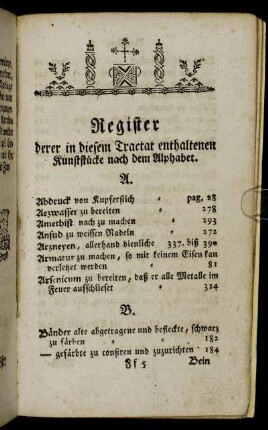 Register
derer in diesem Tractat enthaltenen
Kunststücke nach dem Alphabet.
A.
Abdruck von Kupferstich pag. 28
Aezwasser zu bereiten 278
Amethist nach zu machen 293
Ansud zu weissen Nadeln 272
Arzneyen, allerhand dienliche 337. biß 390
Armatur zu machen, so mit keinem Eisen kan
verletzet werden 81
Arsenicum zu bereiten, daß er alle Metalle im
Feuer aufschliesset 324
B.
Bänder alte abgetragene und befleckte, schwarz
zu färben 182
— gefärbte zu und zuzurichten 184
Ff 5 Bein